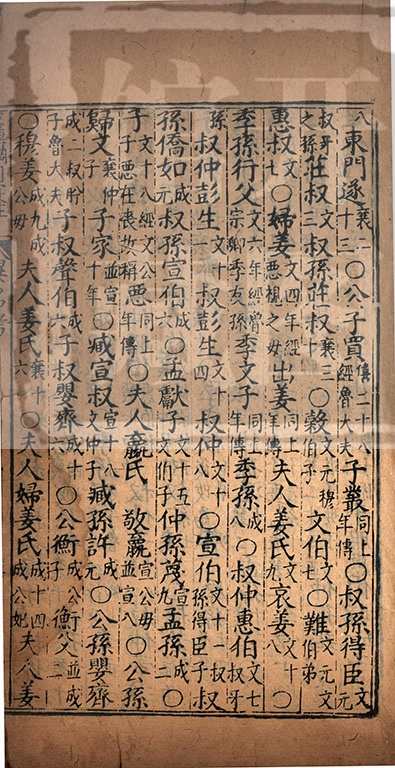 八 東門遂襄二十三○公子買僖二十八經魯大夫子叢同上年傳○叔孫得臣文元
叔牙之孫莊叔文三叔孫莊叔襄三十○穀文元穆伯子文伯文七○難文元文伯弟
惠叔文七○婦姜文四年經惡視之母出姜同上年傳夫人姜氏文九哀姜文十八○
季孫行父文六年經魯宗卿季友孫季文子同上年傳季孫成八○叔仲惠伯文七叔牙
孫叔仲彭生文十一叔彭生文十四叔仲文十八○宣伯文十一叔孫得臣子叔
孫僑如成元叔孫宣伯成六○孟獻子文十五文伯子仲孫蔑宣九孟孫成二○
子文十八經文公子惡在喪故稱惡同上年傳○夫人嬴氏 敬嬴宣公母並宣八○公孫
歸父襄仲子子家並宣十年○臧宣叔宣十八文仲子臧孫許成元○公孫嬰齊
成二叔肸子魯大夫子叔聲伯成六子叔嬰齊成十六○公衡成公子衡父並成二
○穆姜成九成公母夫人姜氏○夫人婦姜氏成十四成公妃夫人姜